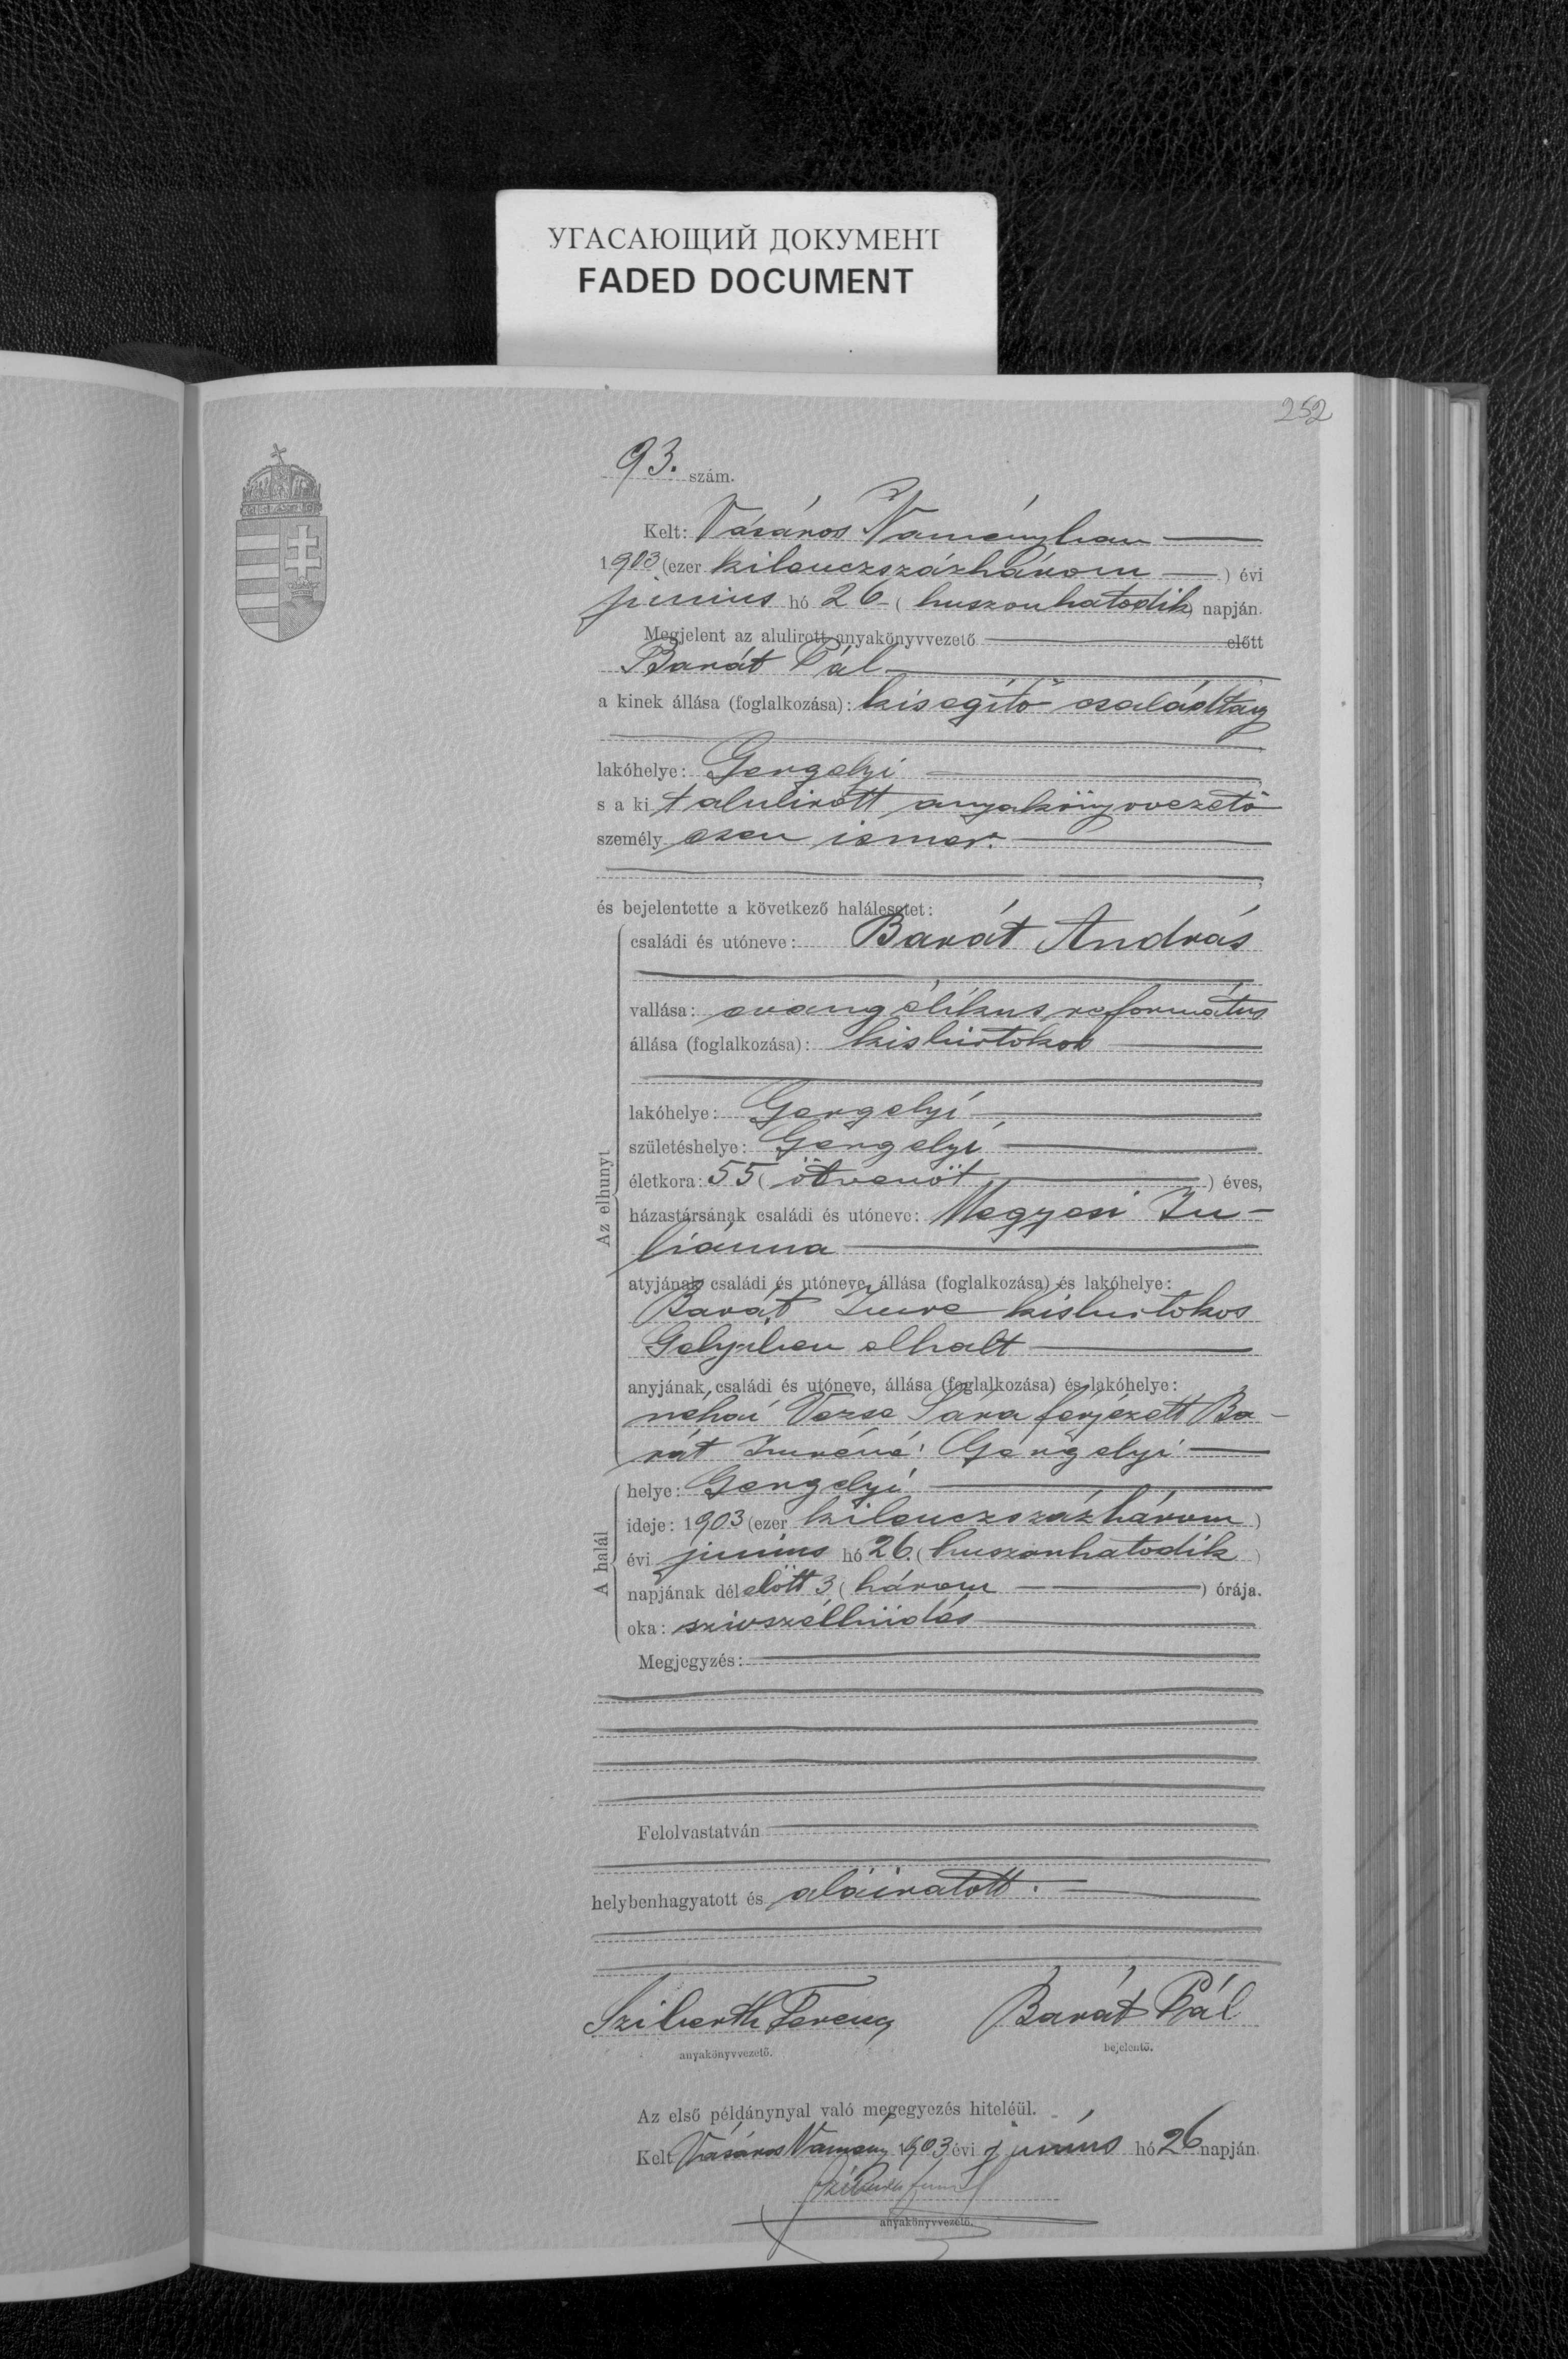 УГАСАЮЩИЙ ДОКУМЕНТ
FADED DOCUMENT
252
93. szám.
Kelt: Vásáros Naményban
1903 (ezer kilenczszázhárom ) évi
junius hó 26 ( huszonhatodik ) napján.
Megjelent az alulirott anyakönyvvezető előtt
Barát Pál
a kinek állása (foglalkozása): kisegítő családtag
lakóhelye: Gergelyi
s a kit alulirott anyakönyvvezető
személyesen ismer.
és bejelentette a következő halálesetet:
Az elhunyt
családi és utóneve: Barát András
vallása: evangélikus református
állása (foglalkozása): kisbirtokos
lakóhelye: Gergelyi
születéshelye: Gergelyi
életkora: 55 ( ötvenöt ) éves,
házastársának családi és utóneve: Megyesi Ju-
liánna
atyjának családi és utóneve, állása (foglalkozása) és lakóhelye:
Barát Imre kisbirtokos
elhalt
anyjának családi és utóneve, állása (foglalkozása) és lakóhelye:
néhai Vezse Sára férjezett Ba-
rát Imréné: Gergelyi
A halál
helye: Gergelyi
ideje: 1903 (ezer kilenczszázhárom )
évi junius hó 26. ( huszonhatodik )
napjának délelőtt 3 ( három ) órája.
oka: szivszélhüdés
Megjegyzés:
Felolvastatván
helybenhagyatott és aláiratott.
Sziberth Ferencz Barát Pál
anyakönyvvezető. bejelentő.
Az első példánynyal való megegyezés hiteléül.
Kelt Vásáros Namény 1903 évi junius hó 26 napján
anyakönyvvezető.